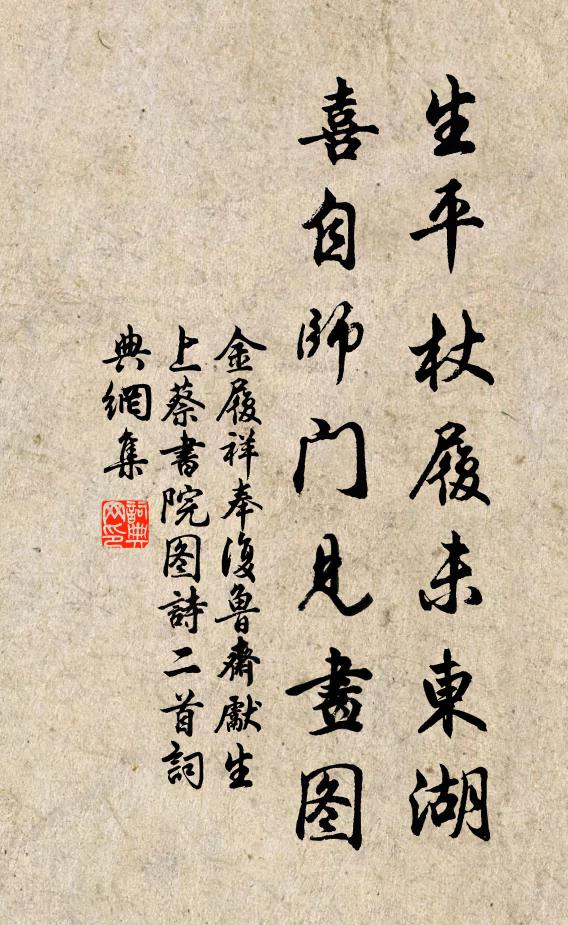 生平杖履未東湖
喜自師門見畫图
金履祥奉復魯齋獻生
上蔡書院图詩二首詞
典網集
詞典
网印